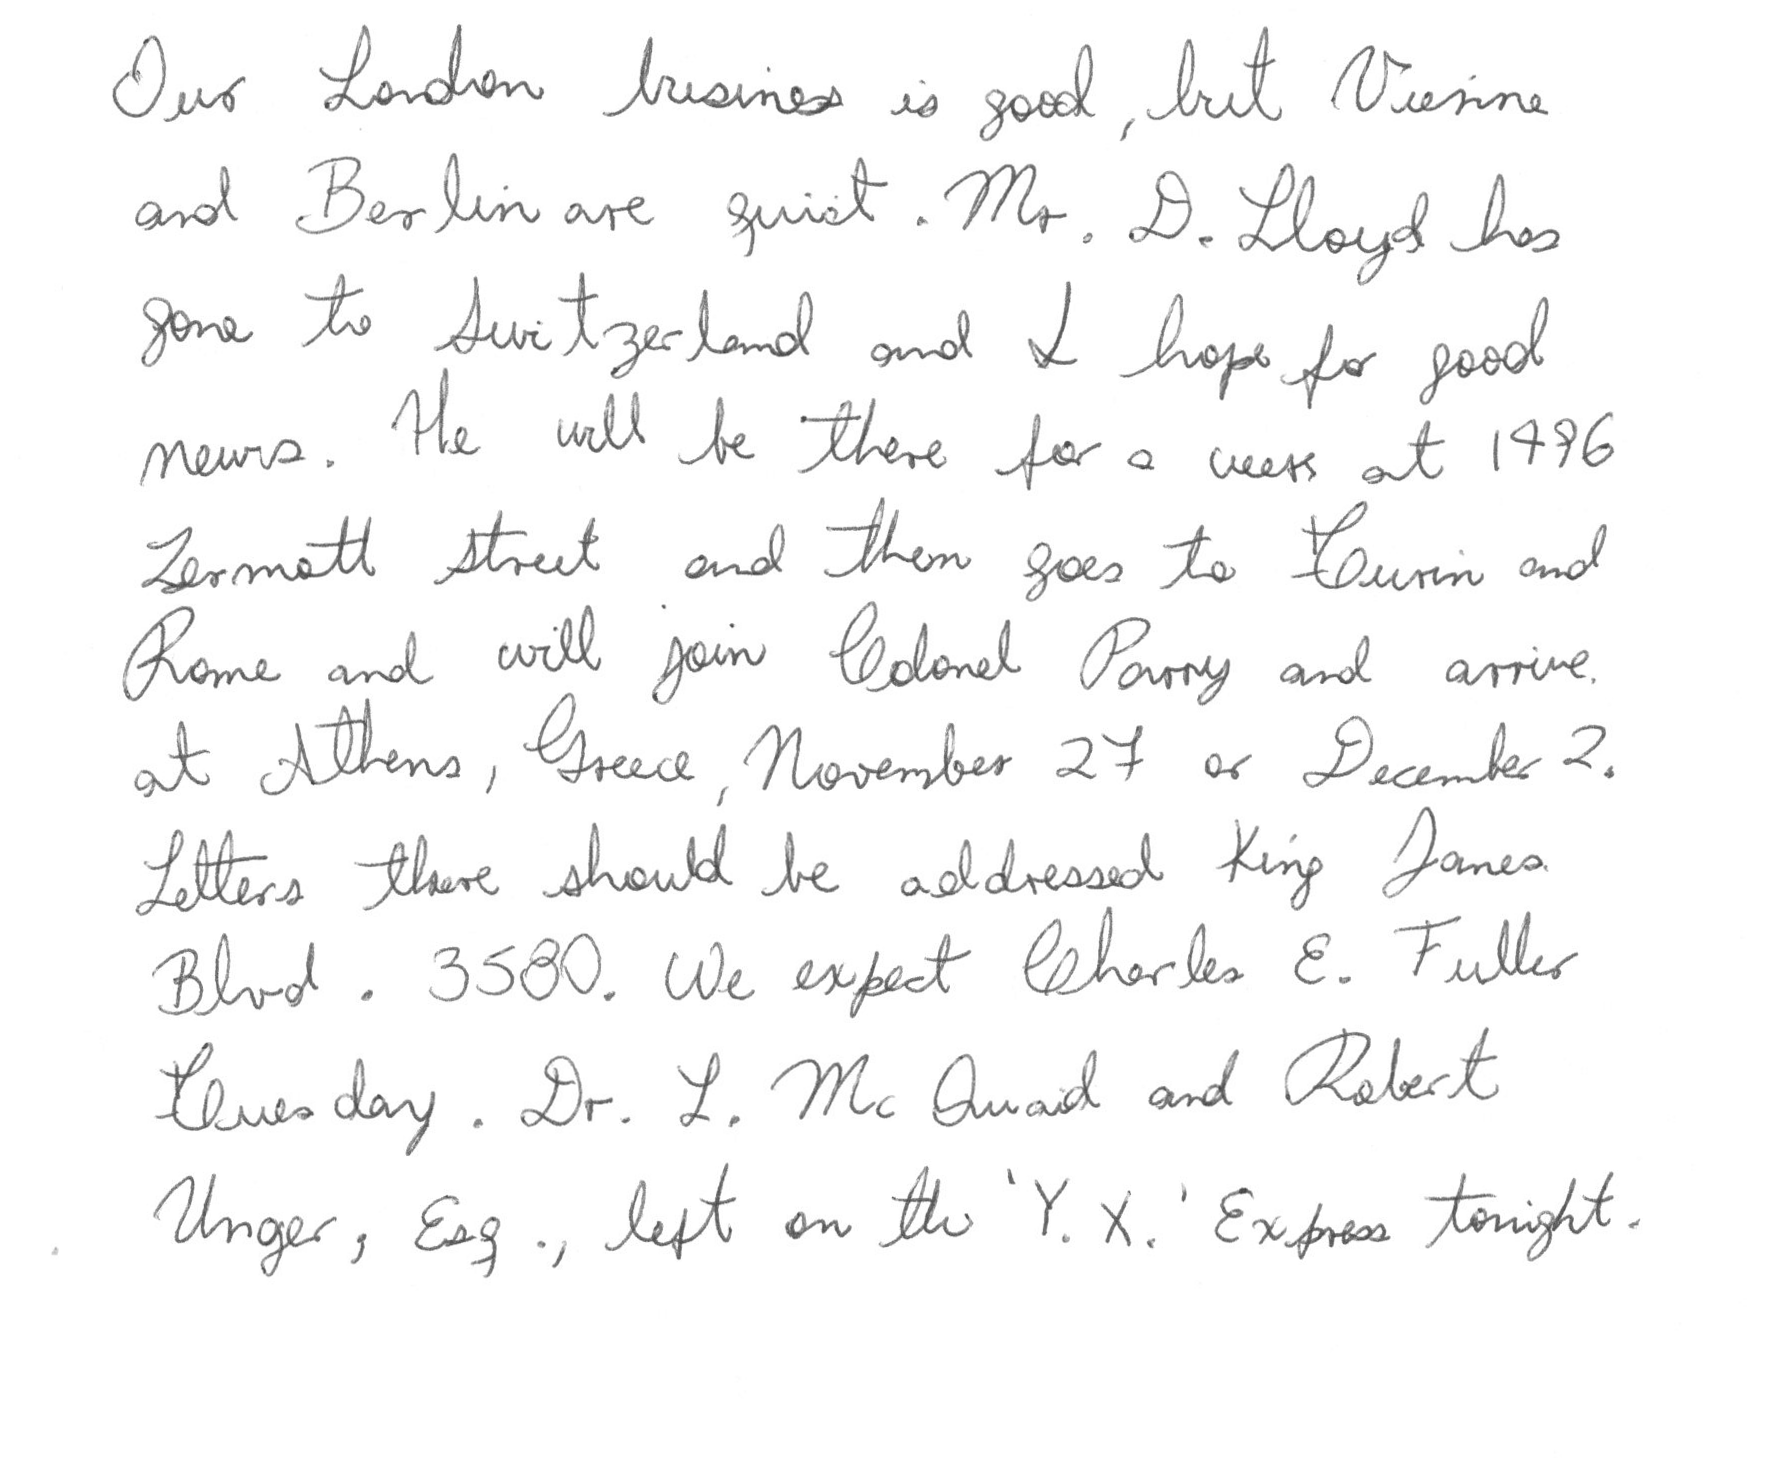 Our London business is good, but Vienne
and Berlin are quiet. Mr. D. Lloyd has
gone to Switzerland and I hope for good
news. He will be there for a week at 1496
Zermott street and then goes to Turin and
Rome and will join Colonel Parry and arrive
at Athens, Greece, November 27 or December 2.
Letters there should be addressed King James
Blvd. 3580. We expect Charles E. Fuller
Tuesday. Dr. L. McQuaid and Robert
Unger, Esq., left on the 'Y. X.' Express tonight.